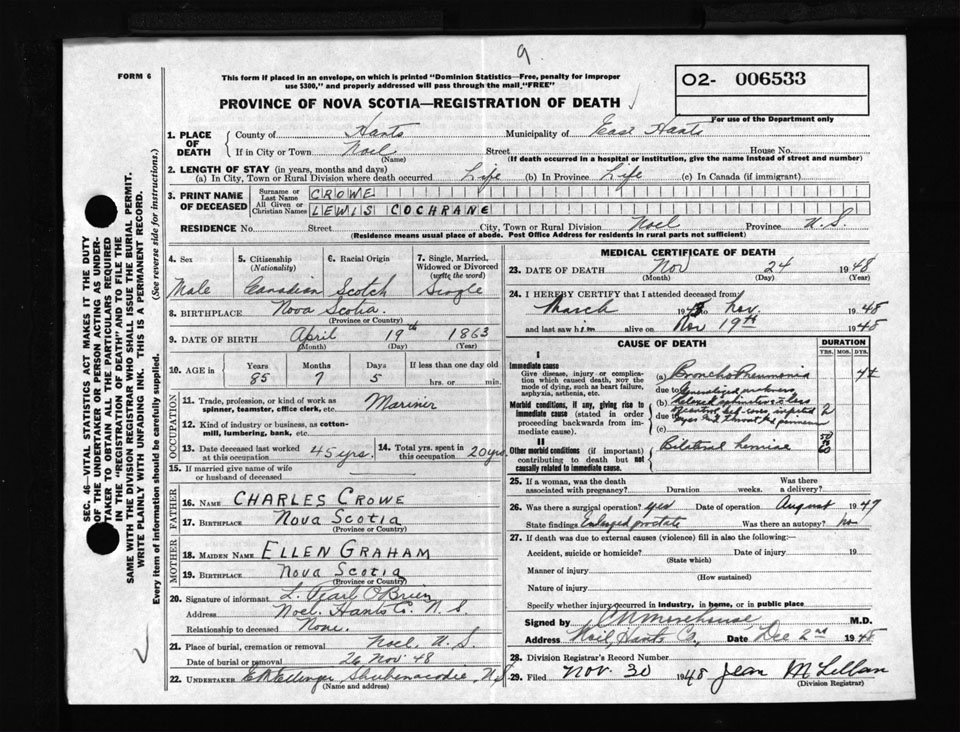 9
FORM 6
This form if placed in an envelope, on which is printed "Dominion Statistics—Free, penalty for improper
use $300," and properly addressed will pass through the mail "FREE"
O2- 006533
For use of the Department only
PROVINCE OF NOVA SCOTIA—REGISTRATION OF DEATH
1. PLACE OF DEATH
County of Hants Municipality of East Hants
If in City or Town Noel Street House No.
(Name) (If death occurred in a hospital or institution, give the name instead of street and number)
2. LENGTH OF STAY (in years, months and days)
(a) In City, Town or Rural Division where death occurred Life (b) In Province Life (c) In Canada (if immigrant)
3. PRINT NAME OF DECEASED
Surname or Last Name CROWE
All Given or Christian Names LEWIS COCHRANE
RESIDENCE No. Street City, Town or Rural Division Noel Province N.S.
(Residence means usual place of abode. Post Office Address for residents in rural parts not sufficient)
4. Sex 5. Citizenship (Nationality) 6. Racial Origin 7. Single, Married, Widowed or Divorced (write the word)
Male Canadian Scotch Single
8. BIRTHPLACE Nova Scotia.
(Province or Country)
9. DATE OF BIRTH April 19th 1863
(Month) (Day) (Year)
10. AGE in Years Months Days If less than one day old
85 7 5 hrs. or min.
OCCUPATION
11. Trade, profession, or kind of work as
spinner, teamster, office clerk, etc. Mariner
12. Kind of industry or business, as cotton-
mill, lumbering, bank, etc.
13. Date deceased last worked at this occupation 45 yrs. 14. Total yrs. spent in this occupation 20 yrs
15. If married give name of wife
or husband
FATHER
16. NAME CHARLES CROWE
17. BIRTHPLACE Nova Scotia
(Province or Country)
MOTHER
18. MAIDEN NAME ELLEN GRAHAM
19. BIRTHPLACE Nova Scotia
(Province or Country)
20. Signature of informant L. Pearl O'Brien
Address Noel, Hants Co. N.S.
Relationship to deceased None.
21. Place of burial, cremation or removal Noel, N.S.
Date of burial or removal 26 Nov '48
22. UNDERTAKER Shubenacadie, N.S
(Name and address)
MEDICAL CERTIFICATE OF DEATH
23. DATE OF DEATH Nov 24 1948
(Month) (Day) (Year)
24. I HEREBY CERTIFY that I attended deceased from
March to Nov. 1948
and last saw him alive on Nov 19th 1948
CAUSE OF DEATH DURATION
YRS. MOS. DYS.
I
Immediate cause
Give disease, injury or complica-
tion which caused death, NOT the
mode of dying, such as heart failure,
asphyxia, asthenia, etc.
(a) Broncho Pneumonia
due to Generalized
Morbid conditions, if any, giving rise to
immediate cause (stated in order
proceeding backwards from im-
mediate cause).
(b)
due to
(c)
2
II
Other morbid conditions (if important)
contributing to death but not
causally related to immediate cause.
Bilateral herniae
25. If a woman, was the death
associated with pregnancy? Duration weeks. Was there a delivery?
26. Was there a surgical operation? yes Date of operation August 1947
State findings Enlarged prostate Was there an autopsy? no
27. If death was due to external causes (violence) fill in also the following:
Accident, suicide or homicide? Date of injury 19
(State which)
Manner of injury
(How sustained)
Nature of injury
Specify whether injury occurred in industry, in home, or in public place
Signed by C N Morehouse M.D.
Address Noel, Hants Co, Date Dec 2nd 1948
28. Division Registrar's Record Number
29. Filed Nov. 30 1948 Jean McLellan
(Division Registrar)
SEC. 46—VITAL STATISTICS ACT MAKES IT THE DUTY
OF THE UNDERTAKER OR PERSON ACTING AS UNDER-
TAKER TO OBTAIN ALL THE PARTICULARS REQUIRED
IN THE "REGISTRATION OF DEATH" AND TO FILE THE
SAME WITH THE DIVISION REGISTRAR WHO SHALL ISSUE THE BURIAL PERMIT.
WRITE PLAINLY WITH UNFADING INK. THIS IS A PERMANENT RECORD.
Every item of information should be carefully supplied. (See reverse side for instructions.)